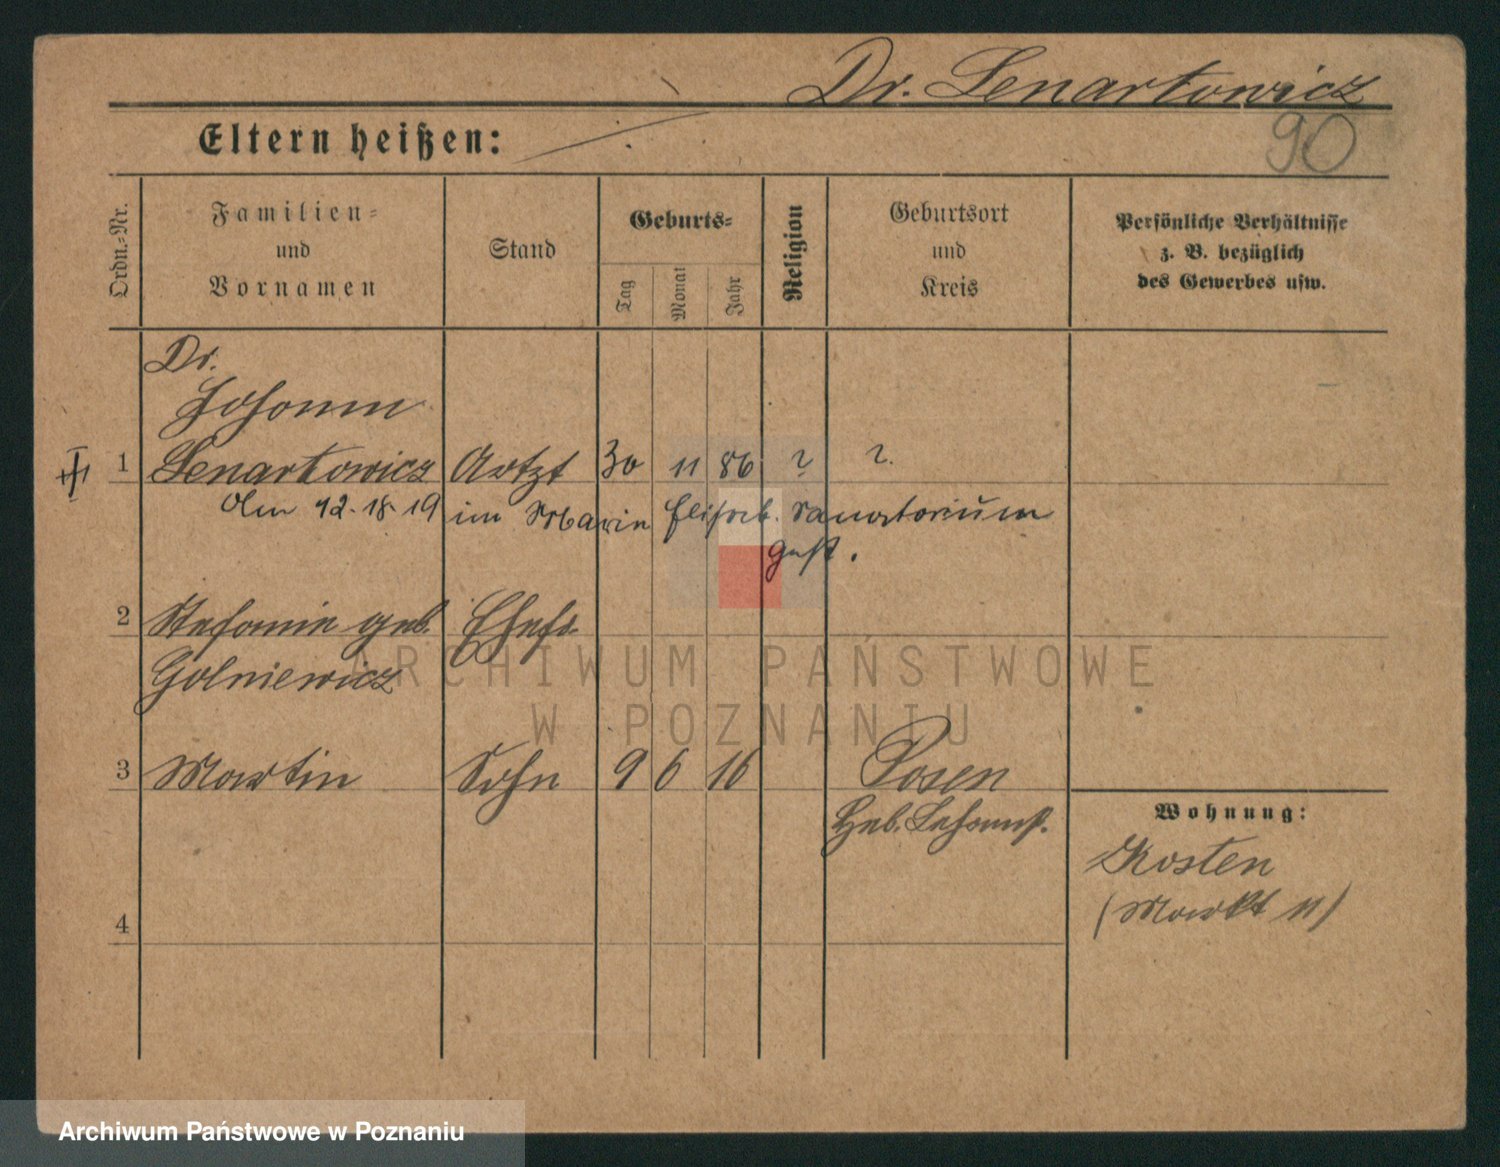 Dr. Lenartowicz
Eltern heißen: ./.
90
Ordn.-Nr.
Familien-
und
Vornamen
Stand
Geburts-
Tag
Monat
Jahr
Religion
Geburtsort
und
Kreis
Persönliche Verhältnisse
z. B. bezüglich
des Gewerbes usw.
Dr.
Johann
1 Lenartowicz Artzt 30 11 86 ? ?.
Am 12. 18 19 im Marien Elisab. Sanatorium
gest.
2 Stefanie geb. Ehefr.
Golniewicz
3 Martin Sohn 9 6 16 Posen
Heb.
Wohnung:
Kosten
(Markt 11)
4
ARCHIWUM PAŃSTWOWE
W POZNANIU
Archiwum Państwowe w Poznaniu